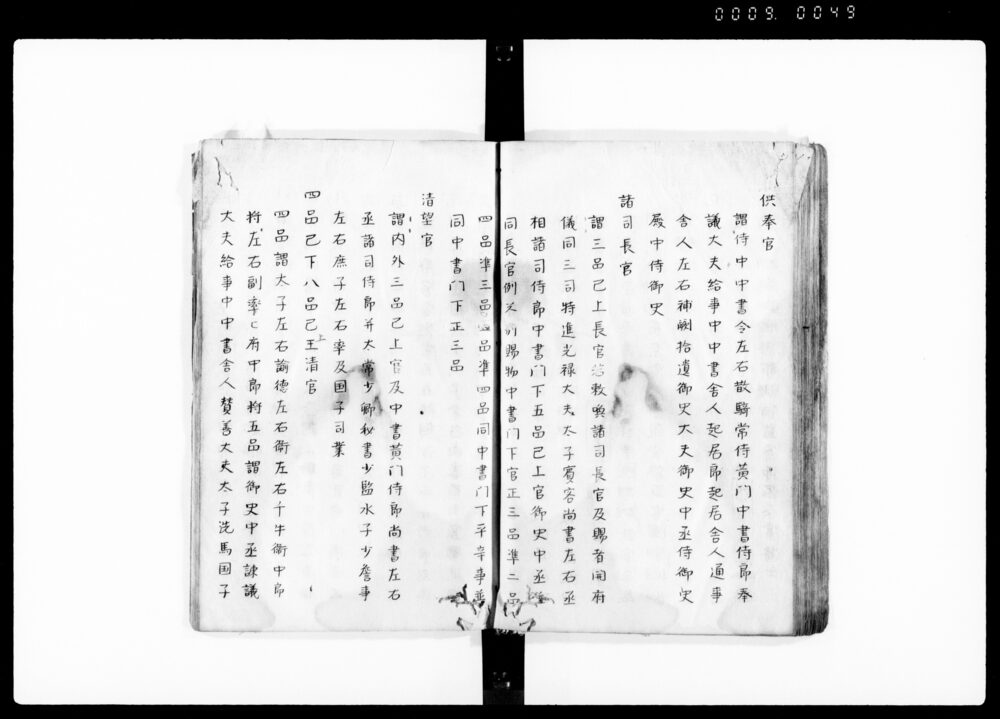 0009. 0049
供奉官
謂侍中中書令左右散騎常侍黄门中書侍郎奉
議大夫給事中中書舍人起居郎起居舍人通事
舍人左右補闕拾遺御史大夫御史中丞侍御史
殿中侍御史
諸司長官
謂三品已上長官若敕喚諸司長官及賜者開府
儀同三司特進光禄大夫太子賓客尚書左右丞
相諸司侍郎中書门下五品已上官御史中丞並
同長官例又別賜物中書门下官正三品準二品
四品準三品五品準四品同中書门下平章事並
同中書门下正三品
清望官
謂内外三品已上官及中書黄门侍郎尚書左右
丞諸司侍郎并太常少卿秘書少監水子少詹事
左右庶子左右率及国子司業
四品已下八品已上王清官
四品謂太子左右諭德左右衛左右千牛衛中郎
将左右副率匕府中郎将五品謂御史中丞諫議
大夫給事中中書舍人賛善大夫太子洗馬国子